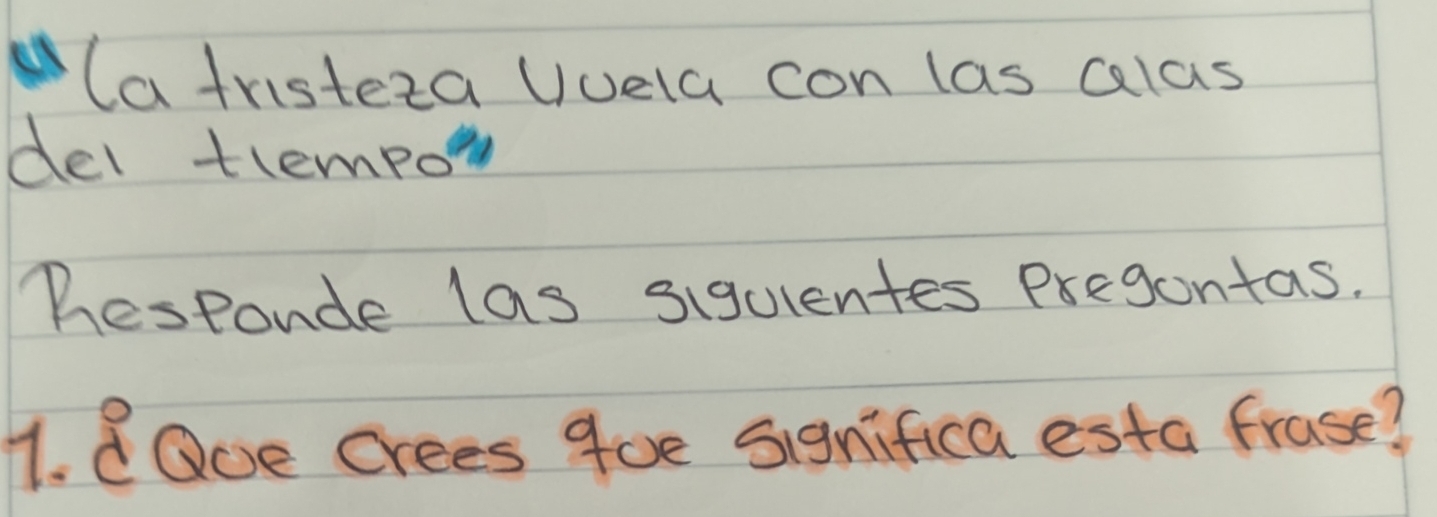 "La tristeza vuela con las alas
del tiempo"
Responde las siguientes preguntas.
1. ¿Que crees que significa esta frase?